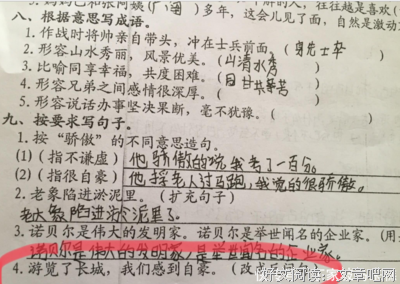 3. 妈妈已和张阿姨( )多年，这会儿见了面，自然是激动
八、根据意思写成语。
1. 作战时将帅亲自带头，冲在士兵前面。(身先士卒
2. 形容山水秀丽，风景优美。(山清水秀)
3. 比喻同享幸福，共度困难。(同甘共苦
4. 形容兄弟之间感情很深厚。( )
5. 形容说话办事坚决果断，毫不犹豫。( )
九、按要求写句子。
1. 按“骄傲”的不同意思造句。
(1) (指不谦虚) 他骄傲的说我考了一百分。
(2) (指很自豪) 他扶老人过马路，我觉的很骄傲。
2. 老象陷进淤泥里。(扩充句子)
老大象陷进淤泥里了。
3. 诺贝尔是伟大的发明家。诺贝尔是举世闻名的企业家。(用
诺贝尔是伟大的发明家，是举世闻名的企业家。
4. 游览了长城，我们感到自豪。(改